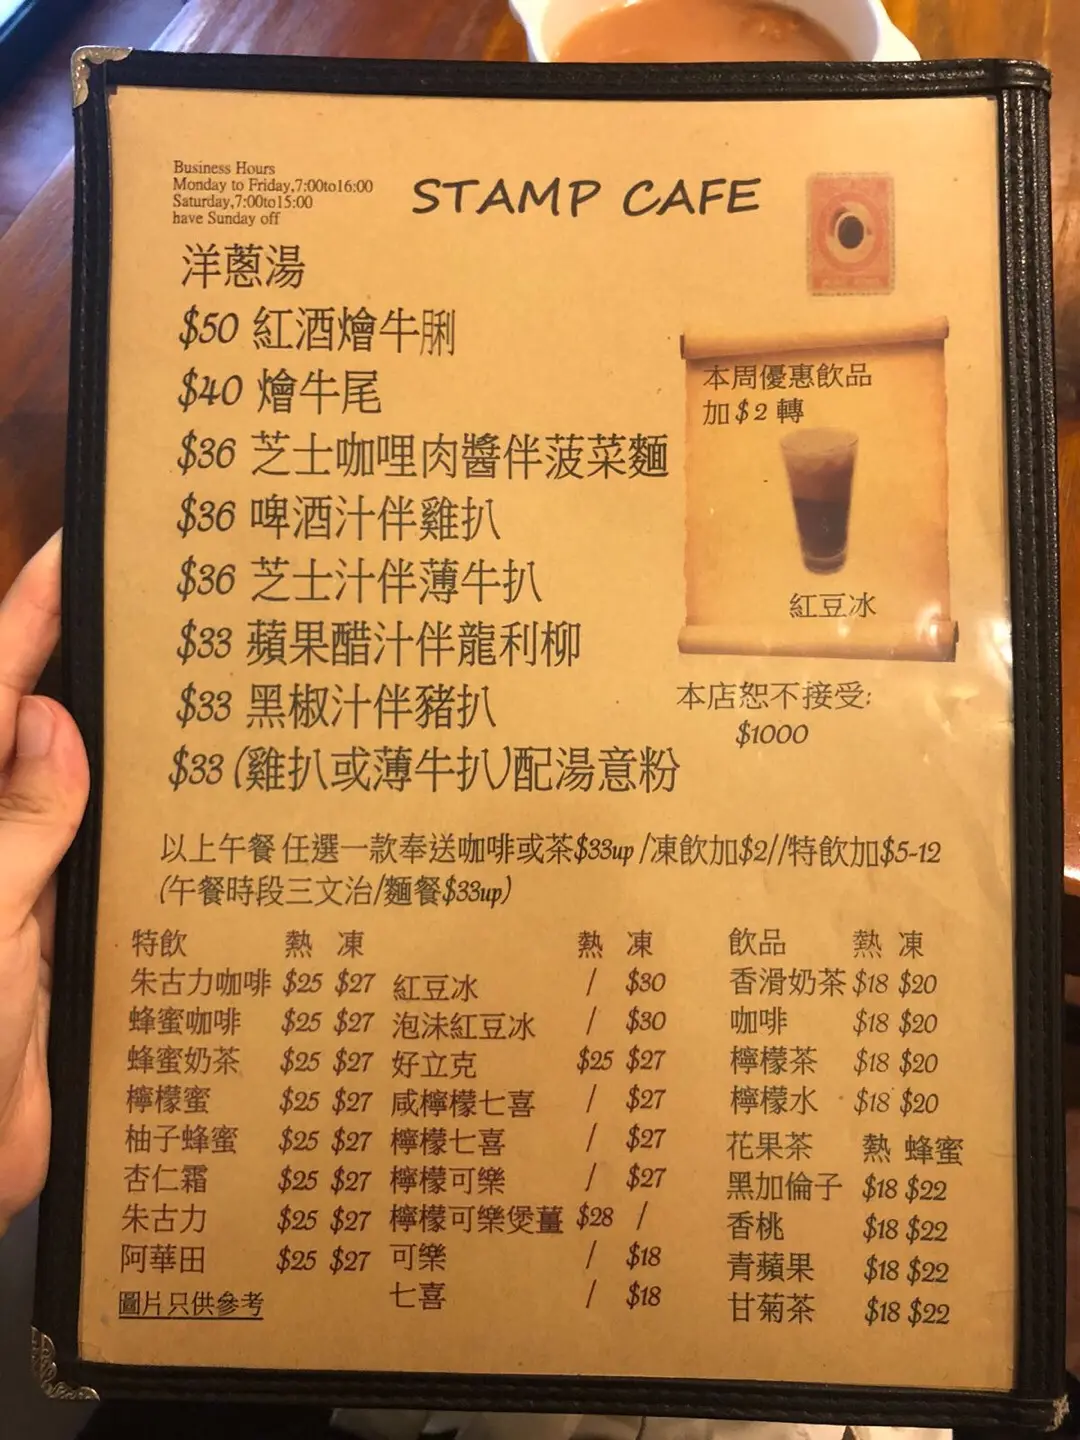 Business Hours
Monday to Friday,7:00to16:00
Saturday,7:00to15:00
have Sunday off
STAMP CAFE
洋蔥湯
$50 紅酒燴牛脷
$40 燴牛尾
$36 芝士咖哩肉醬伴菠菜麵
$36 啤酒汁伴雞扒
$36 芝士汁伴薄牛扒
$33 蘋果醋汁伴龍利柳
$33 黑椒汁伴豬扒
$33 (雞扒或薄牛扒)配湯意粉
本周優惠飲品
加$2轉
紅豆冰
本店恕不接受:
$1000
以上午餐 任選一款奉送咖啡或茶$33up /凍飲加$2//特飲加$5-12
(午餐時段三文治/麵餐$33up)
特飲 熱 凍
朱古力咖啡 $25 $27
蜂蜜咖啡 $25 $27
蜂蜜奶茶 $25 $27
檸檬蜜 $25 $27
柚子蜂蜜 $25 $27
杏仁霜 $25 $27
朱古力 $25 $27
阿華田 $25 $27
圖片只供參考
熱 凍
紅豆冰 / $30
泡沫紅豆冰 / $30
好立克 $25 $27
咸檸檬七喜 / $27
檸檬七喜 / $27
檸檬可樂 / $27
檸檬可樂煲薑 $28 /
可樂 / $18
七喜 / $18
飲品 熱 凍
香滑奶茶 $18 $20
咖啡 $18 $20
檸檬茶 $18 $20
檸檬水 $18 $20
花果茶 熱 蜂蜜
黑加倫子 $18 $22
香桃 $18 $22
青蘋果 $18 $22
甘菊茶 $18 $22